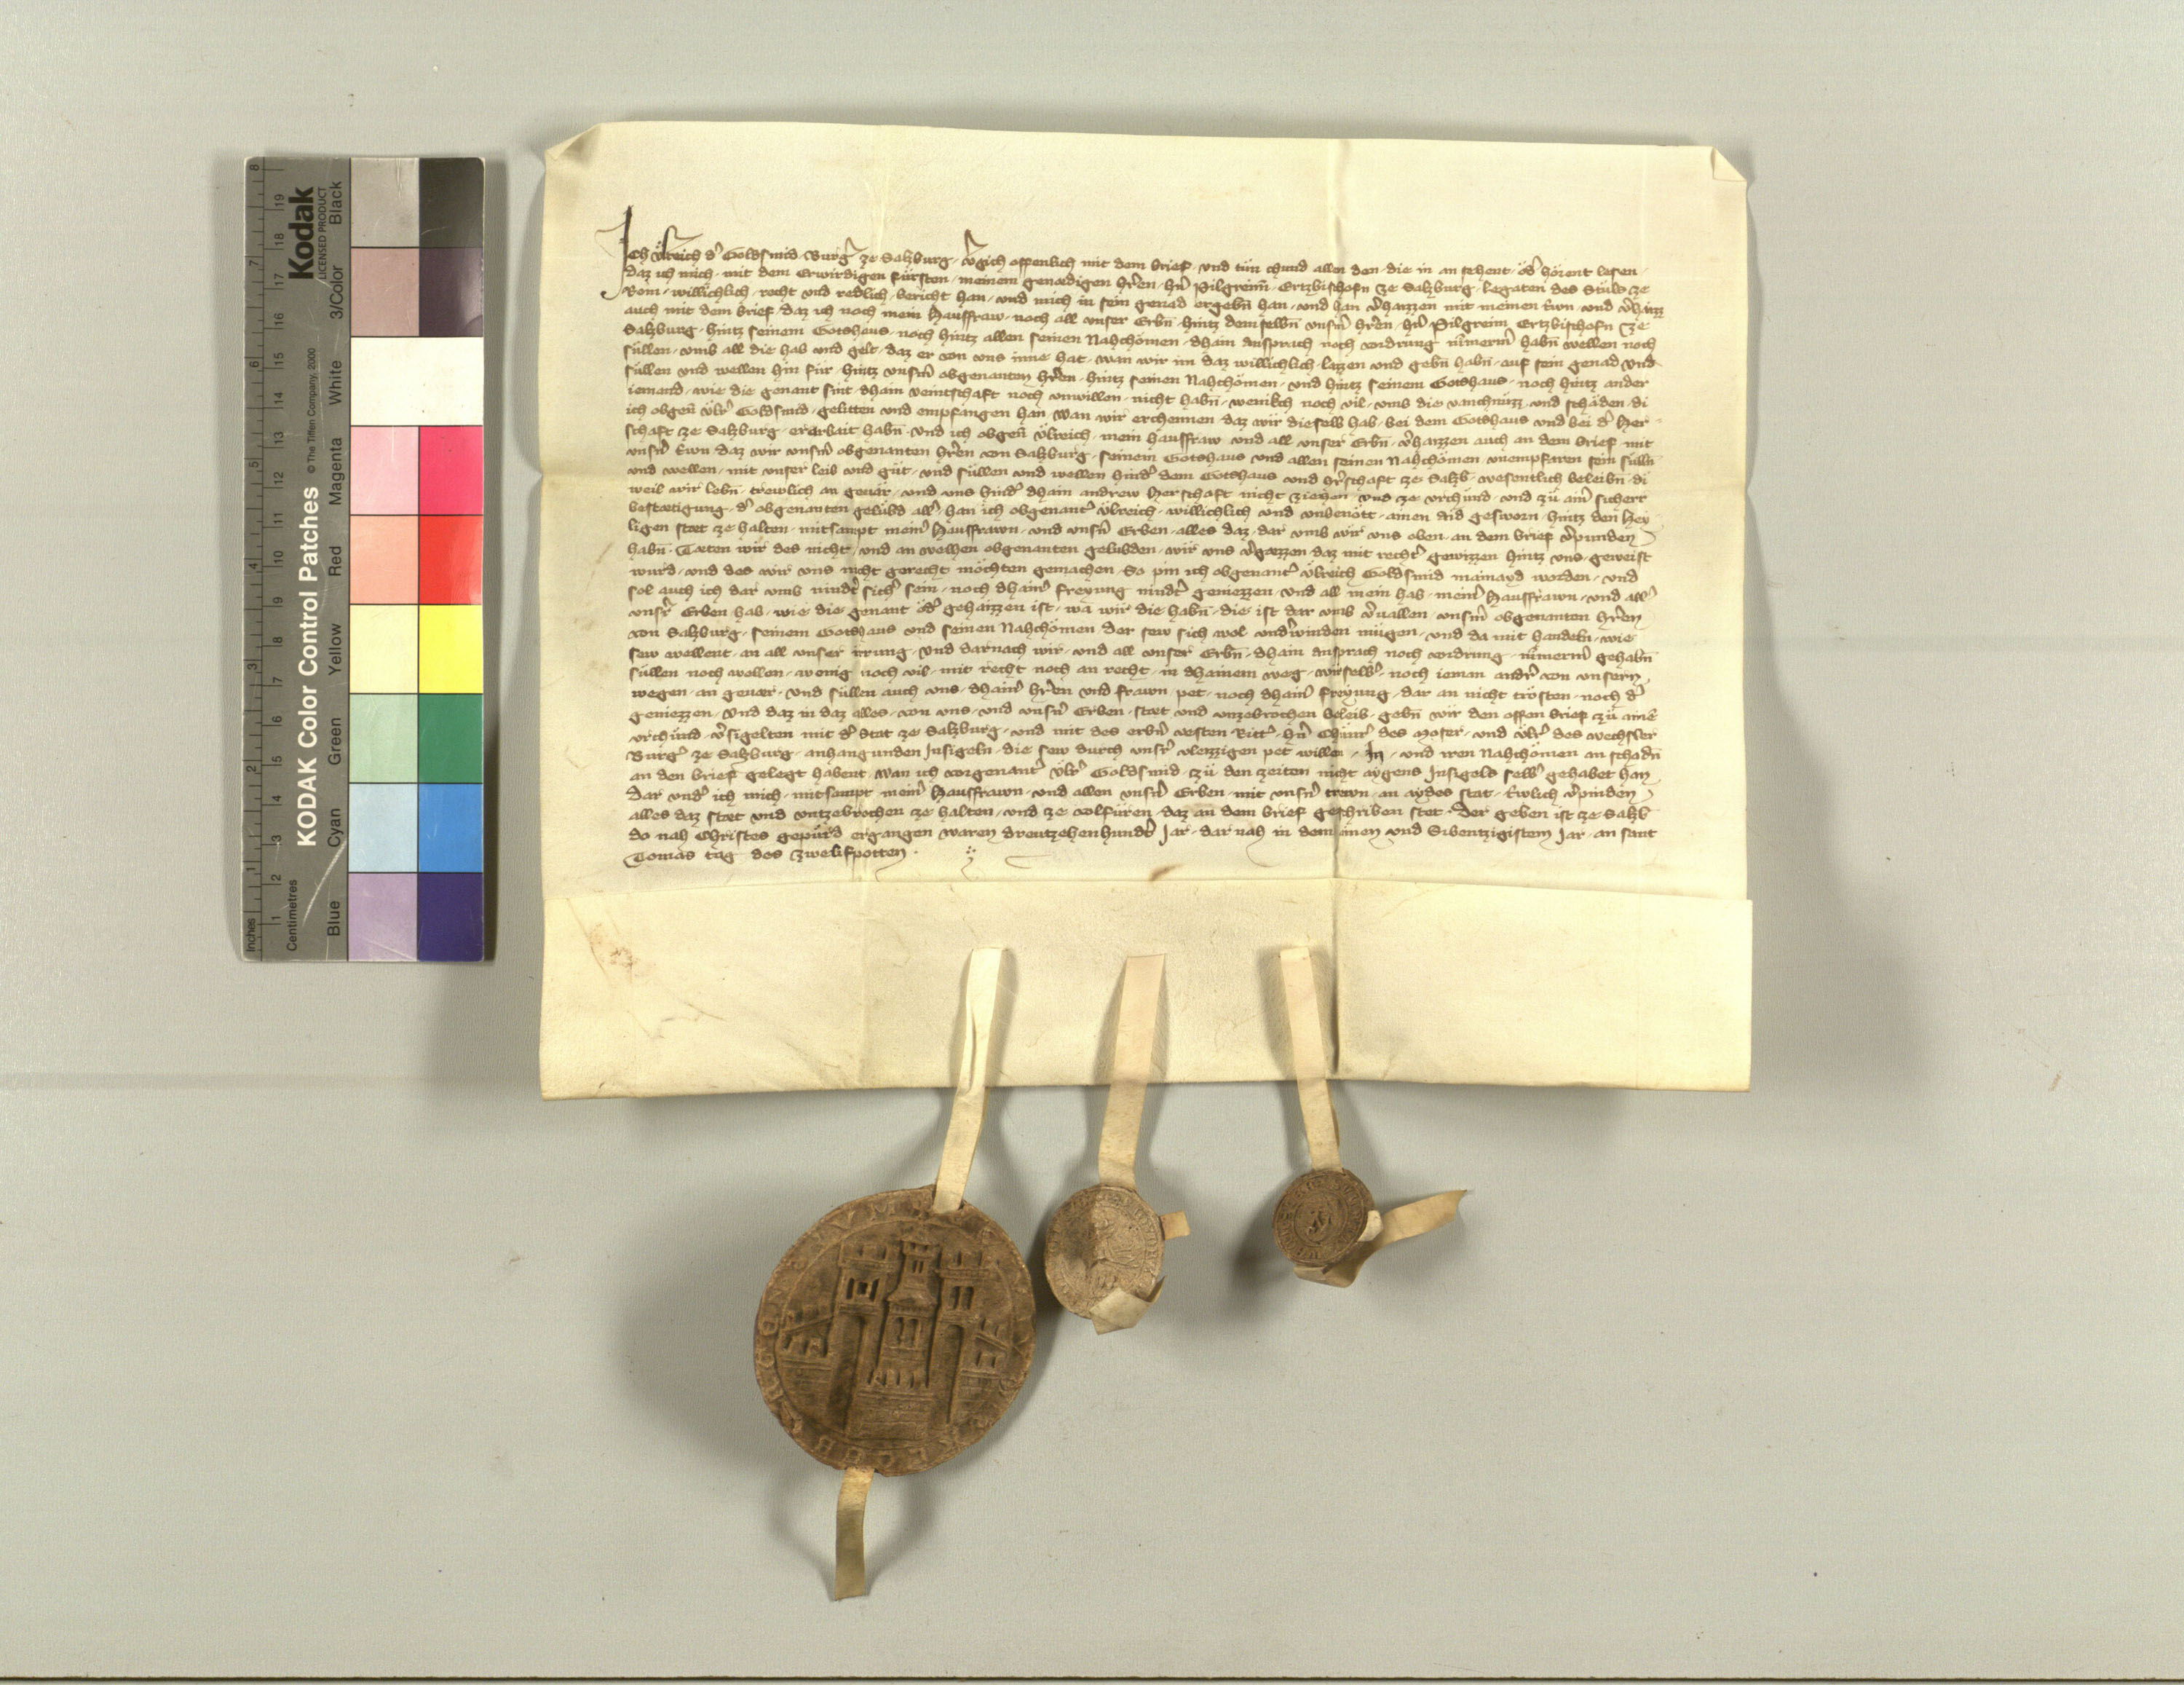 Ich Ůlreich d' Goldsmid Burg' ze Salzburg v'gich offenlich mit dem brief und tůn chund allen den die in an sehent od' hörent lesen
daz ich mich mit dem Erwirdigen fürsten meinem genædigen h'ren h'n Pilgreim Ertzbischofn ze Salzburg Legaten des Stůls ze
Rom willichlich recht und redlich bericht han und mich in sein genad ergebn̄ han und han v'haizzen mit meinen trwn und v'haizz
auch mit dem brief daz ich noch mein hausfraw noch all unser Erbn̄ hintz demselbn̄ unsn̄ h'ren h'n Pilgreim Ertzbischofn ze
Salzburg hintz seinem Gotshaus noch hintz allen seinen Nachchömen dhain ansprach noch vordrung nimerm̄ habn̄ wellen noch
süllen umb all die hab und gelt daz er von uns inne hat wan wir im daz willichlich lazzen und gebn̄ habn̄ auf sein genad und
süllen und wellen hin für hintz unsm̄ obgenanten h'ren hintz seinen Nachchömen und hintz seinem Gotshaus noch hintz ander
iemand wie die genant sint dhain veintschaft noch unwillen nicht habn̄ wenikch noch vil umb die vanchnüzz und schäden di
ich obgen̄ Ůlr' Goldsmid gelitten und empfangen han wan wir erchennen daz wir dieselb hab bei dem Gotshaus und bei d' Her
schaft ze Salzburg ererbait habn̄ Und ich obgen̄ Ůlreich mein hausfraw und all unser Erbn̄ v'haizzen auch an dem brief mit
unsn̄ trwn daz wir unsm̄ obgenanten h'ren von Salzburg seinem Gotshaus und allen seinen Nachchömen unempfaren sein sülln̄
und wellen mit unser leib und gůt und süllen und wellen hind' dem Gotshaus und h'rschaft ze Salzb' wesentlich beleibn̄ di
weil wir lebn̄ trewlich an gevär und uns hind' dhain andrew Herschaft nicht ziehen Und ze urchund und zů ain' sicherr
bestætigung d' obgenanten gelübd all' han ich obgenant' Ůlreich willichlich und unbenött ainen aid gesworn hintz den Hey
ligen stæt ze halten mitsampt mein' Hausfrawn und unsn̄ Erben alles daz dar umb wir uns oben an dem brief v'punden
habn̄ Tæten wir des nicht und an welhen obgenanten gelübden wir uns v'gæzzen daz mit recht' gewizzen hintz uns geweist
wurd und des wir uns nicht gerecht möchten gemachen So pin ich obgenant' Ůlreich Goldsmid mainayd worden und
sol auch ich dar umb nindt' sich' sein noch dhain' freyung nindt' geniezzen und all mein hab mein' Hausfrawn und all'
unsr' Erben hab wie die genant od' gehaizzen ist wa wir die habn̄ die ist dar umb v'vallen unsm̄ obgenanten h'ren
von Salzburg seinem Gotshaus und seinen Nachchömen der sew sich wol und'winden mügen und da mit handeln wie
sew wellent an all unser irrung Und darnach wir und all unser Erbn̄ dhain ansprach noch vordrung nimerm̄ gehabn̄
süllen noch wellen wenig noch vil mit recht noch an recht in dhainem weg wirselb' noch ieman and'r von unsern
wegen an gevær und süllen auch uns dhain' h'ren und frawn pet noch dhain' freyung dar an nicht trösten noch d'
geniezzen Und daz in daz alles von uns und unsn̄ Erben stæt und unzebrochen beleib gebn̄ wir den offen brief zů aine
urchund v'sigelten mit d' Stat ze Salzburg und mit des erbn̄ vesten Ritt' h'n Chůnr' des Moser und Ůlr' des wechsler
Burg' ze Salzburg anhangunden Insigeln die sew durch unsr' vleizzigen pet willen In und iren Nachchömen an schadn̄
an den brief gelegt habent wan ich vorgenant' Ůlr' Goldsmid zů den zeiten nicht aygens Insigels selb' gehabet han
dar und' ich mich mitsampt mein' Hausfrawn und allen unsn̄ Erben mit unsn̄ trewn an aydes stat trwlich v'pinden
alles daz stæt und untzebrochen ze halten und ze volfüren daz an dem brief geschriben stet Der geben ist ze Salzb'
do nach Christes gepürd ergangen waren dreutzehenhundt' Jar dar nach in dem ainen und Sibentzigistem Jar an sant
Tomas tag des zwelifpotten
KODAK Color Control Patches © The Tiffen Company, 2000
Kodak
LICENSED PRODUCT
Inches 1 2 3 4 5 6 7 8
Centimetres 1 2 3 4 5 6 7 8 9 10 11 12 13 14 15 16 17 18 19
Blue Cyan Green Yellow Red Magenta White 3/Color Black